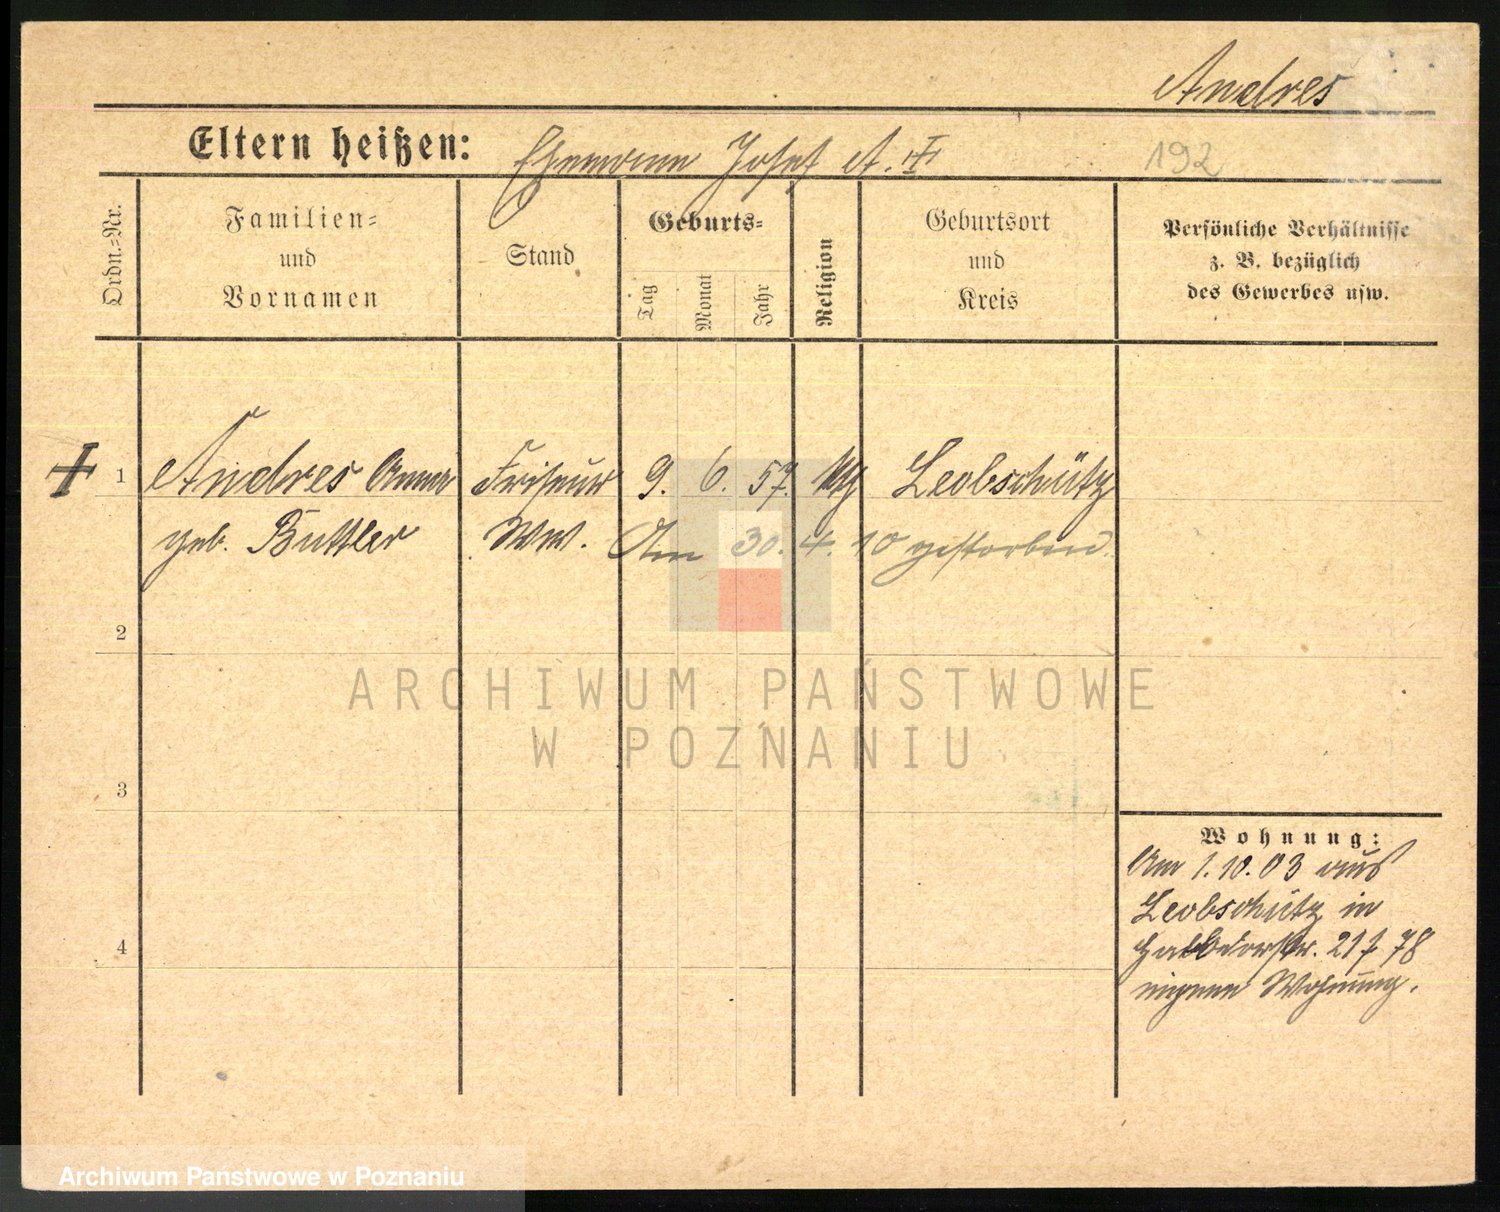 Andres
Eltern heißen: Ehemann Josef A. †
192
Ordn.-Nr.
Familien-
und
Vornamen
Stand
Geburts-
Tag
Monat
Jahr
Religion
Geburtsort
und
Kreis
Persönliche Verhältnisse
z. B. bezüglich
des Gewerbes usw.
† 1 Andres Anna Friseur 9. 6. 57. Leobschütz
geb. Buttler Ww. Am 30. 4. 10 gestorben.
2
3
4
Wohnung:
Am 1.10.03 aus
Leobschütz in
78
eigene Wohnung.
ARCHIWUM PAŃSTWOWE
W POZNANIU
Archiwum Państwowe w Poznaniu